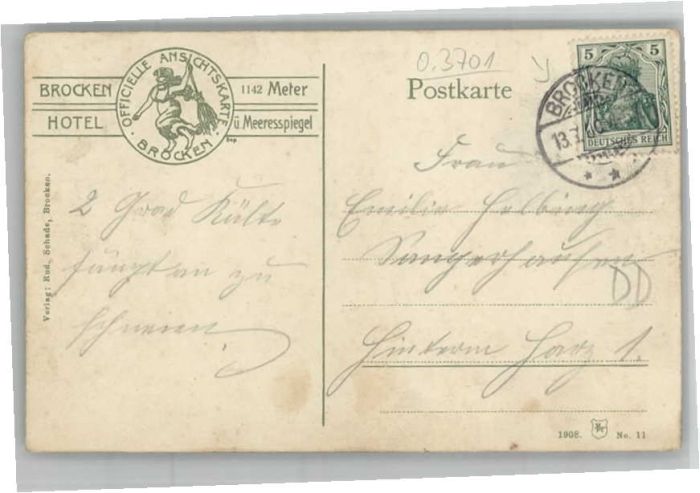 BROCKEN
HOTEL
OFFICIELLE ANSICHTSKARTE
BROCKEN
1142 Meter
ü Meeresspiegel
0.3701
Postkarte
5 5
DEUTSCHES REICH
BROCKEN
13.7.
Frau
Emilie Helbing
Sangerhausen
DD
Hinterm Harz 1.
2 Grad Kälte
fängt an zu
schneien.
Verlag: Rud. Schade, Brocken.
1908. No. 11